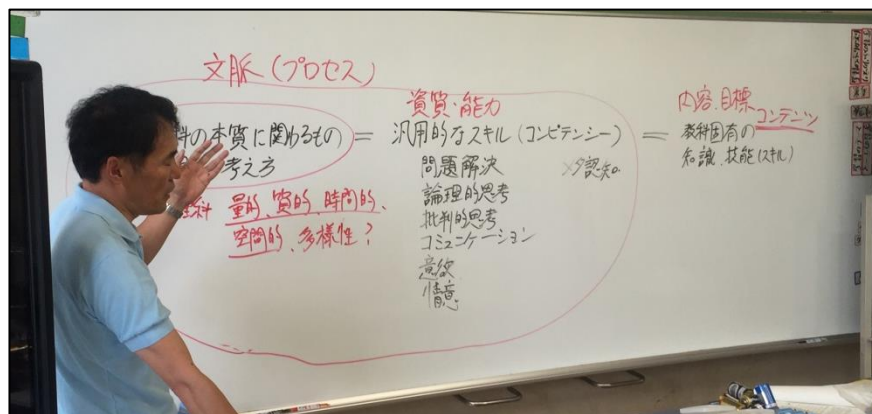 文脈(プロセス)
科の本質に関わるもの)
考え方
理科 量的、質的、時間的、
空間的、多様性?
=
資質・能力
汎用的なスキル(コンピテンシー)
問題解決
論理的思考
批判的思考
コミュニケーション
意欲
情意
メタ認知
=
内容、目標
コンテンツ
教科固有の
知識、技能(スキル)